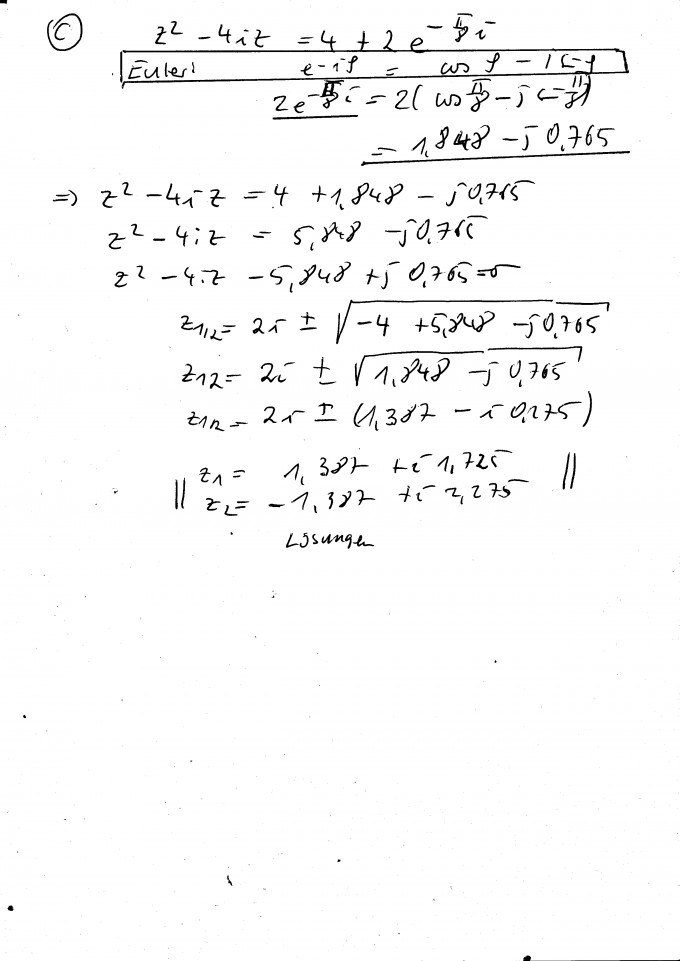 (c) z² - 4iz = 4 + 2 e^(-π/8 i)
Euler: e^(-iφ) = cos φ - i sin φ
2e^(-π/8 i) = 2(cos π/8 - j sin π/8)
= 1,848 - j 0,765
=> z² - 4iz = 4 + 1,848 - j 0,765
z² - 4iz = 5,848 - j 0,765
z² - 4iz - 5,848 + j 0,765 = 0
z1/2 = 2i ± √(-4 + 5,848 - j 0,765)
z12 = 2i ± √(1,848 - j 0,765)
z1/2 = 2i ± (1,387 - i 0,275)
z1 = 1,387 + i 1,725
z2 = -1,387 + i 2,275
Lösungen